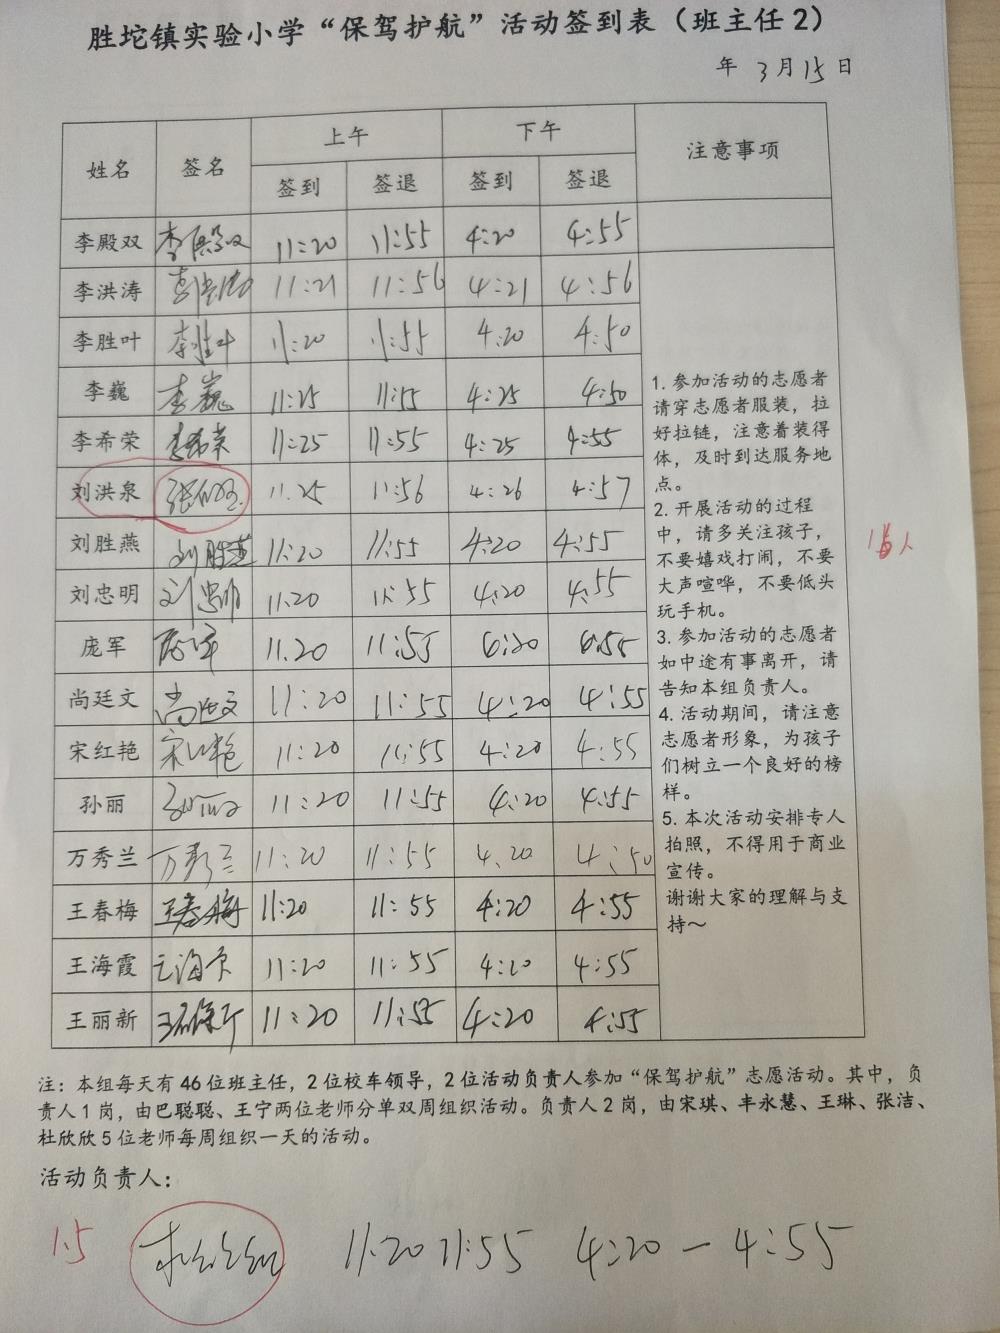 胜坨镇实验小学“保驾护航”活动签到表（班主任2）
年 3月15日
姓名 签名 上午 下午 注意事项
签到 签退 签到 签退
李殿双 李殿双 11:20 11:55 4:20 4:55
李洪涛 李洪涛 11:21 11:56 4:21 4:56
李胜叶 李胜叶 11:20 11:55 4:20 4:50
李巍 李巍 11:25 11:55 4:25 4:50
李希荣 李希荣 11:25 11:55 4:25 4:55
刘洪泉 11.25 11:56 4:26 4:57
刘胜燕 刘胜燕 11:20 11:55 4:20 4:55
刘忠明 刘忠明 11.20 11:55 4:20 4:55
庞军 庞军 11.20 11:55 4:20 4:55
尚廷文 尚廷文 11:20 11:55 4:20 4:55
宋红艳 宋红艳 11:20 11:55 4:20 4:55
孙丽 孙丽 11:20 11:55 4:20 4:55
万秀兰 万秀兰 11:20 11:55 4.20 4:50
王春梅 王春梅 11:20 11:55 4:20 4:55
王海霞 王海霞 11:20 11:55 4:20 4:55
王丽新 王丽新 11:20 11:55 4:20 4:55
1. 参加活动的志愿者
请穿志愿者服装，拉
好拉链，注意着装得
体，及时到达服务地
点。
2. 开展活动的过程
中，请多关注孩子，
不要嬉戏打闹，不要
大声喧哗，不要低头
玩手机。
3. 参加活动的志愿者
如中途有事离开，请
告知本组负责人。
4. 活动期间，请注意
志愿者形象，为孩子
们树立一个良好的榜
样。
5. 本次活动安排专人
拍照，不得用于商业
宣传。
谢谢大家的理解与支
持～
人
注：本组每天有46位班主任，2位校车领导，2位活动负责人参加“保驾护航”志愿活动。其中，负
责人1岗，由巴聪聪、王宁两位老师分单双周组织活动。负责人2岗，由宋琪、丰永慧、王琳、张洁、
杜欣欣5位老师每周组织一天的活动。
活动负责人：
1.5 11:20 11:55 4:20－4:55